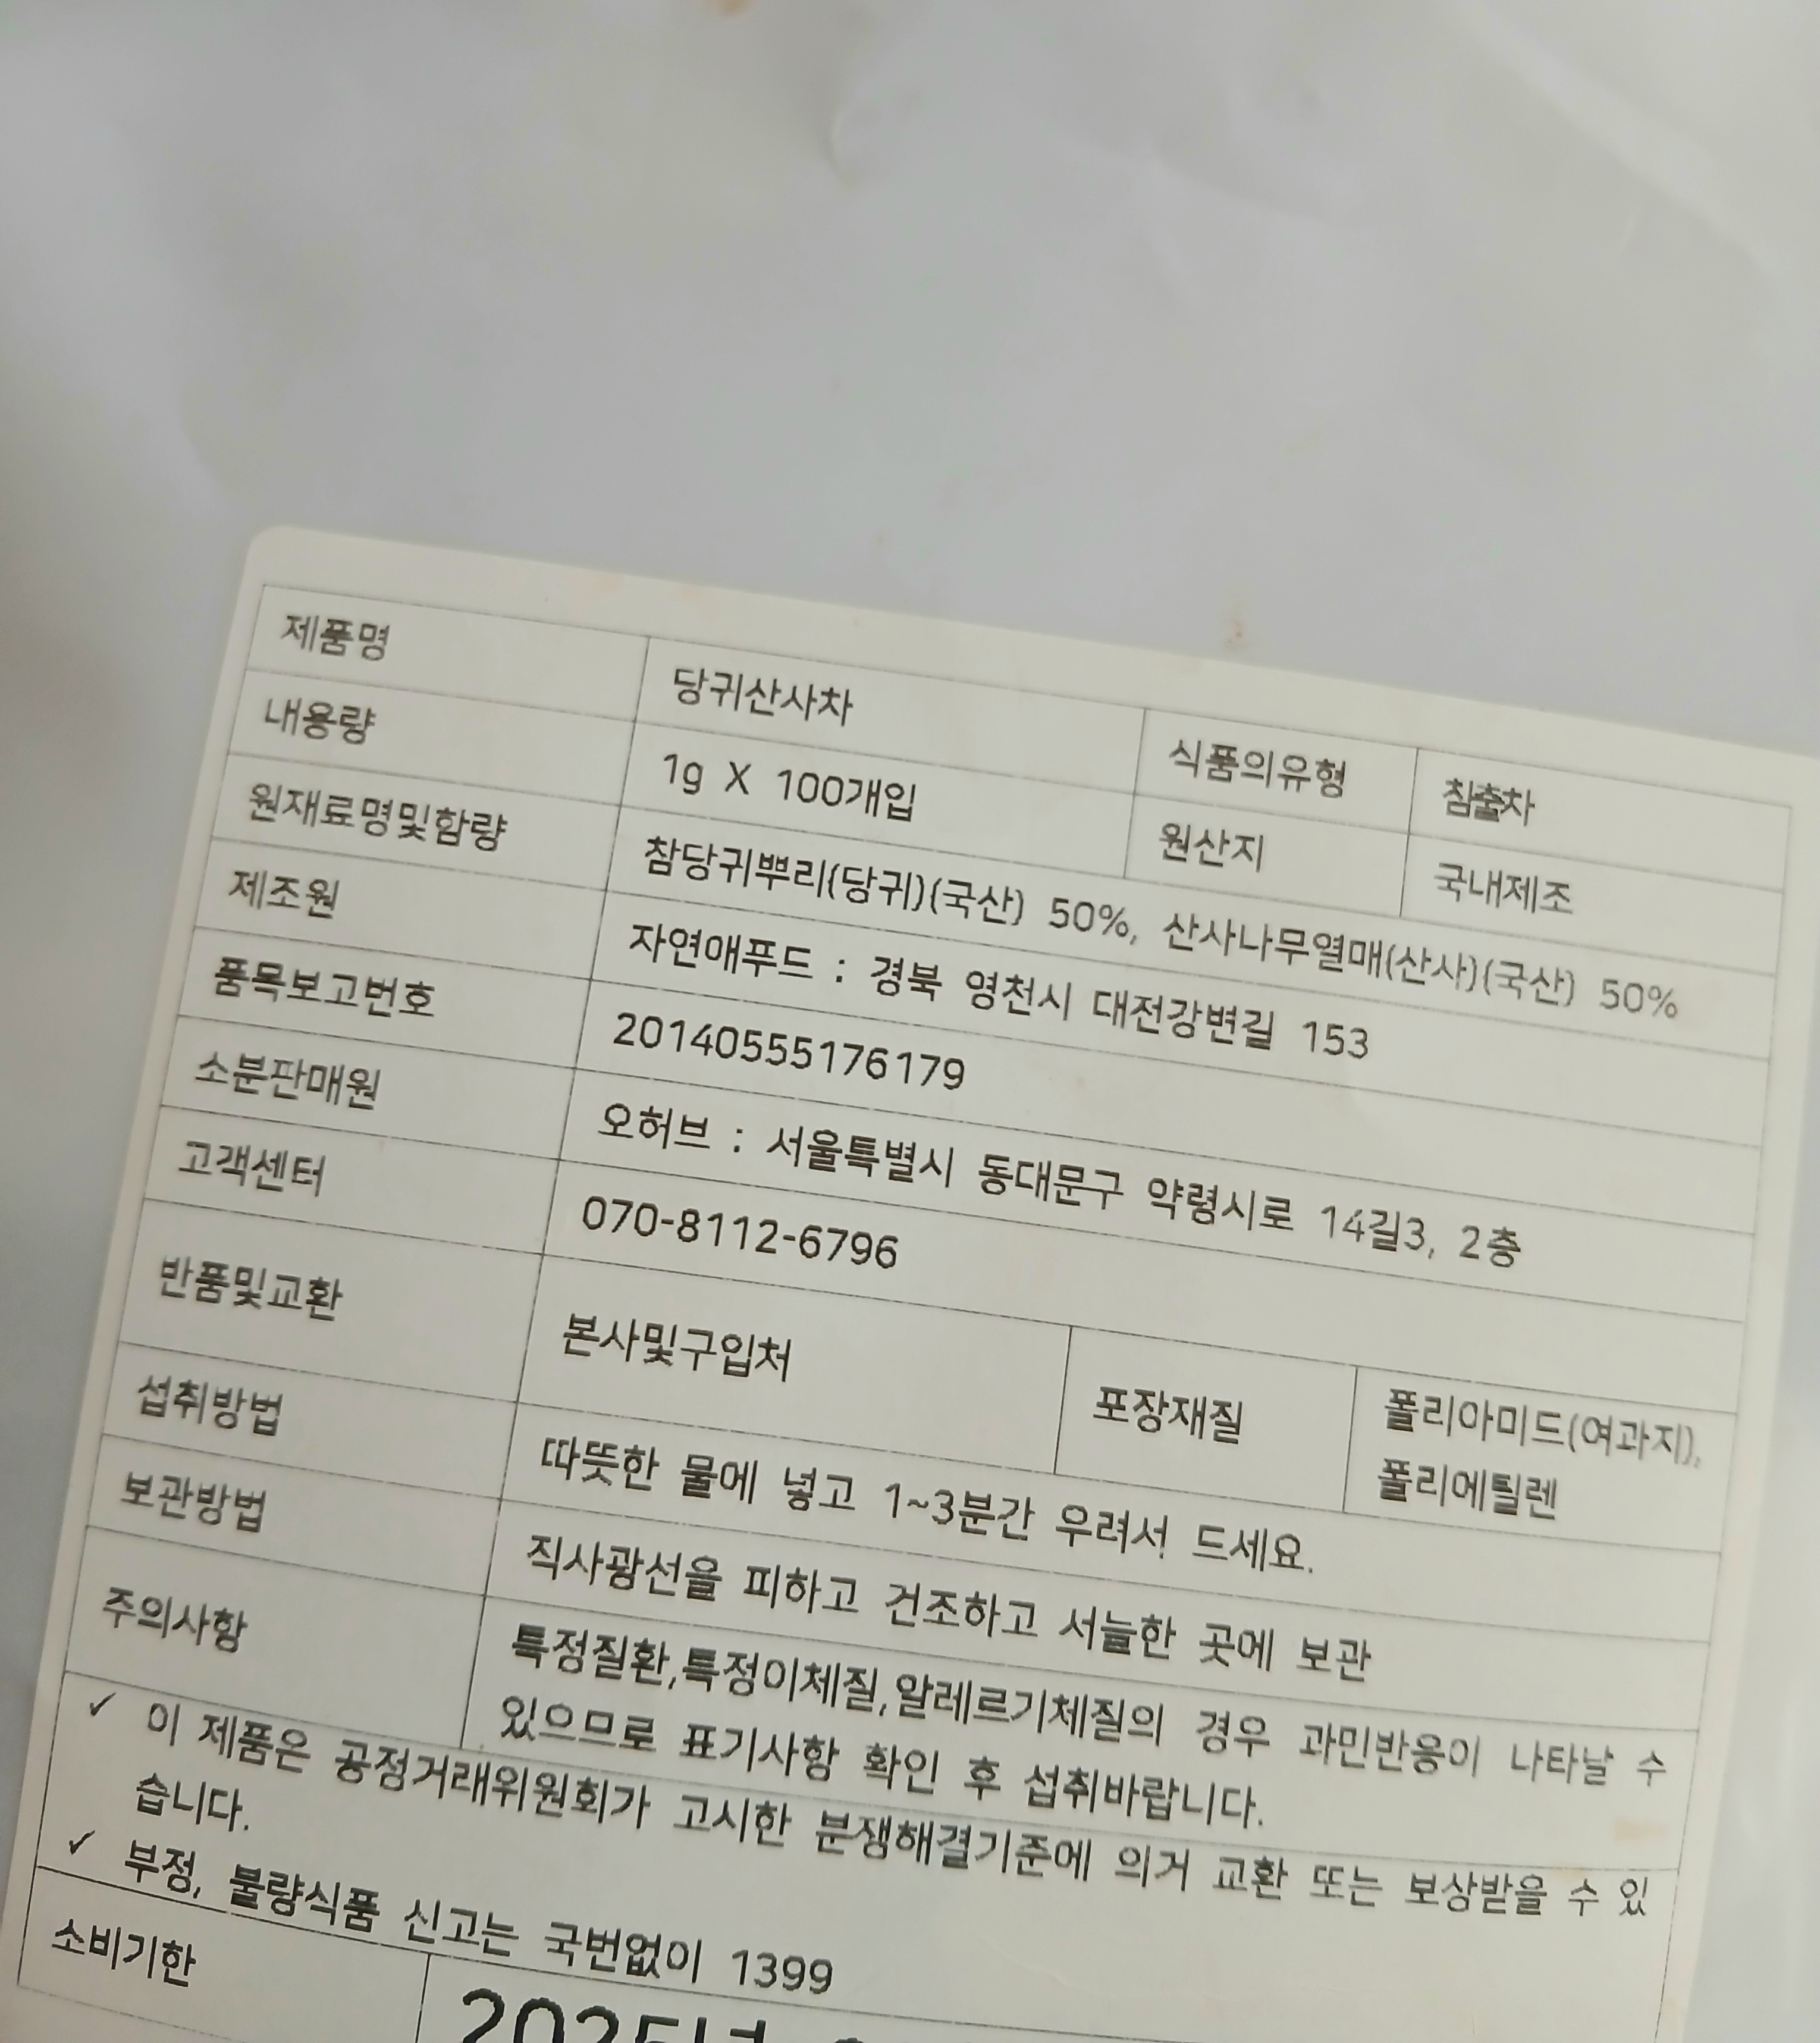 제품명 당귀산사차 식품의유형 침출차
내용량 1g X 100개입 원산지 국내제조
원재료명및함량 참당귀뿌리(당귀)(국산) 50%, 산사나무열매(산사)(국산) 50%
제조원 자연애푸드 : 경북 영천시 대전강변길 153
품목보고번호 20140555176179
소분판매원 오허브 : 서울특별시 동대문구 약령시로 14길3, 2층
고객센터 070-8112-6796
반품및교환 본사및구입처 포장재질 폴리아미드(여과지),
폴리에틸렌
섭취방법 따뜻한 물에 넣고 1~3분간 우려서 드세요.
보관방법 직사광선을 피하고 건조하고 서늘한 곳에 보관
주의사항 특정질환,특정이체질,알레르기체질의 경우 과민반응이 나타날 수
있으므로 표기사항 확인 후 섭취바랍니다.
✓ 이 제품은 공정거래위원회가 고시한 분쟁해결기준에 의거 교환 또는 보상받을 수 있
습니다.
✓ 부정, 불량식품 신고는 국번없이 1399
소비기한 2025년